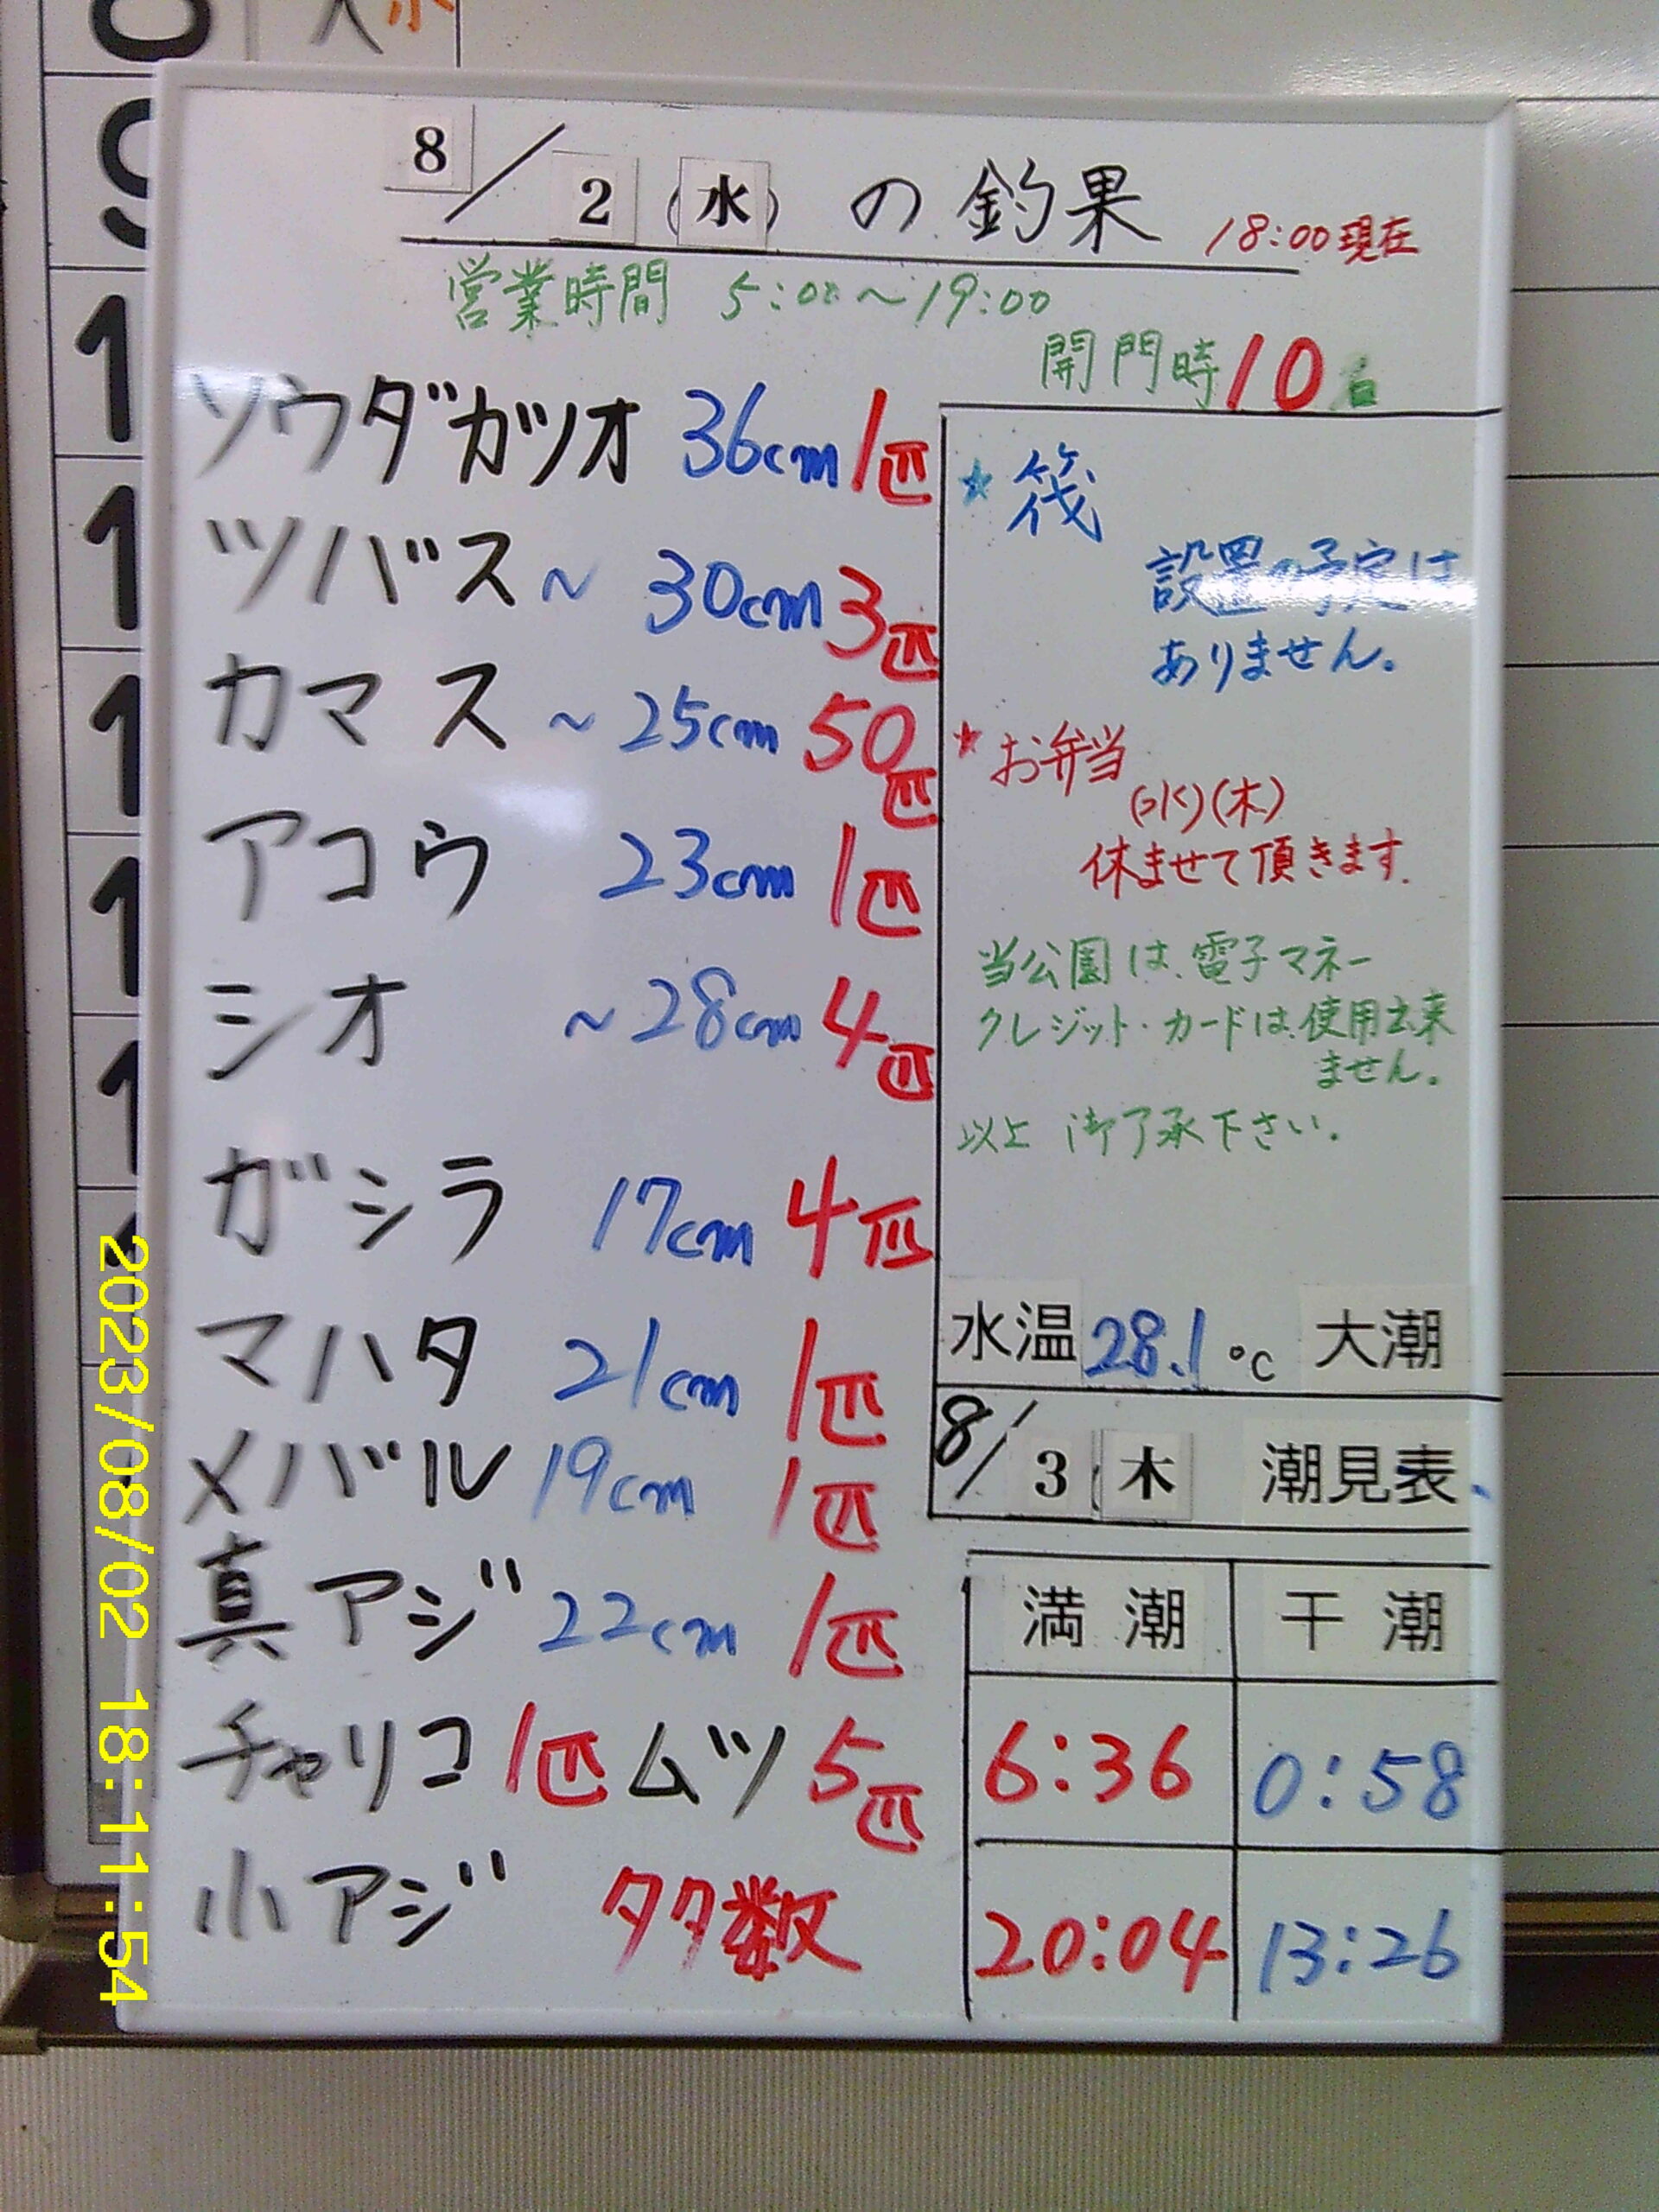 8/2(水)の釣果 18:00現在
営業時間 5:00~19:00
開門時10名
ソウダガツオ 36cm 1匹
ツバス ~30cm 3匹
カマス ~25cm 50匹
アコウ 23cm 1匹
シオ ~28cm 4匹
ガシラ 17cm 4匹
マハタ 21cm 1匹
メバル 19cm 1匹
真アジ 22cm 1匹
チャリコ 1匹 ムツ 5匹
小アジ 多数
★筏
設置の予定は
ありません。
★お弁当
(水)(木)
休ませて頂きます.
当公園は、電子マネー
クレジット・カードは使用出来
ません。
以上 御了承下さい。
水温 28.1 ℃ 大潮
8/3(木 潮見表
満潮 干潮
6:36 0:58
20:04 13:26
2023/08/02 18:11:54